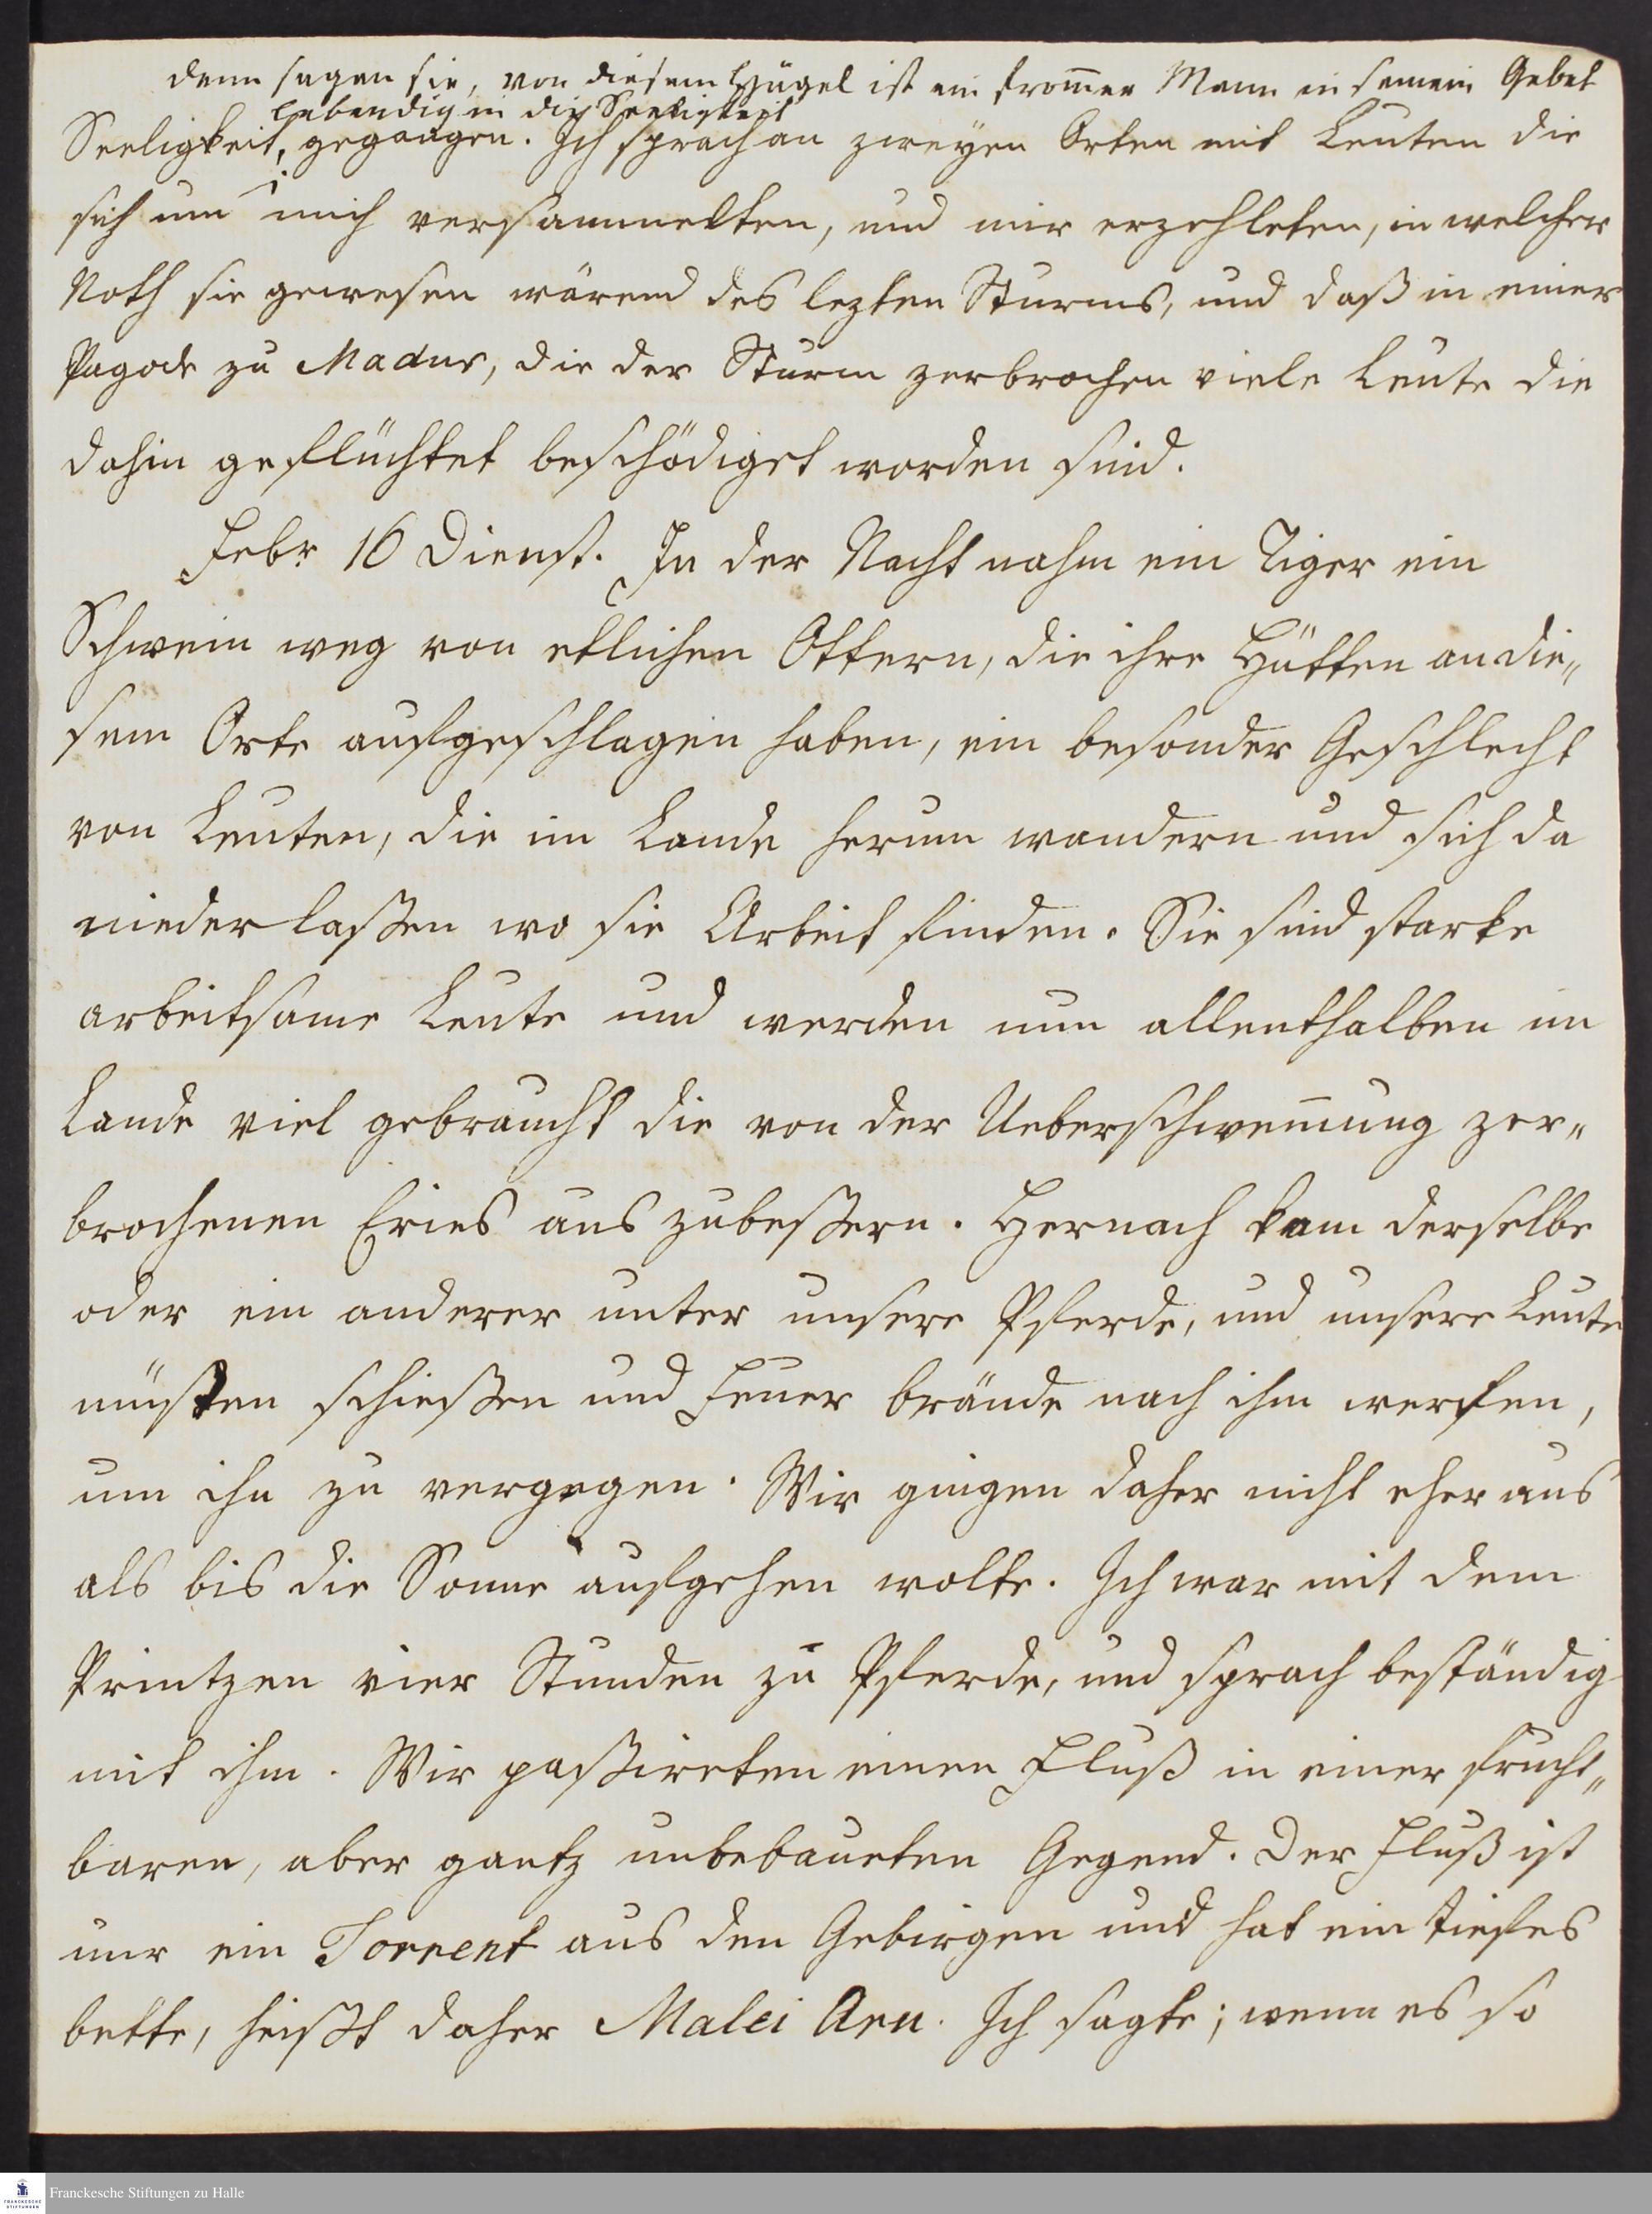 denn sagen sie, von diesem Hügel ist ein from̅er Mann in seinem Gebet
lebendig in die Seeligkeit
Seeligkeit, gegangen. Ich sprach an zweyen Orten mit Leuten die
sich um mich versammelten, und mir erzehleten, in welcher
Noth sie gewesen wärend des lezten Sturms, und daß in einer
Pagode zu Madur, die der Sturm zerbrochen viele Leute die
dahin geflüchtet beschädiget worden sind.
Febr 16 Dienst. In der Nacht nahm ein Tiger ein
Schwein weg von etlichen Ottern, die ihre Hütten an die„
sem Orte aufgeschlagen haben, ein besonder Geschlecht
von Leuten, die im Lande herum wandern und sich da
nieder laßen wo sie Arbeit finden. Sie sind starke
arbeitsame Leute und werden nun allenthalben im
Lande viel gebraucht die von der Ueberschwem̅ung zer„
brochenen Eries aus zubeßern. Hernach kam derselbe
oder ein anderer unter unsere Pferde, und unsere Leute
müßten schießen und Feuer brände nach ihm werfen,
um ihn zu verjagen. Wir gingen daher nicht eher aus
als bis die Sonne aufgehen wolte. Ich war mit dem
Printzen vier Stunden zu Pferde, und sprach beständig
mit ihm. Wir paßireten einen Fluß in einer frucht„
baren, aber gantz unbebaueten Gegend. Der Fluß ist
nur ein Torrent aus den Gebirgen und hat ein tiefes
bette, heißt daher Malei Aru. Ich sagte; wenn es so
Franckesche Stiftungen zu Halle